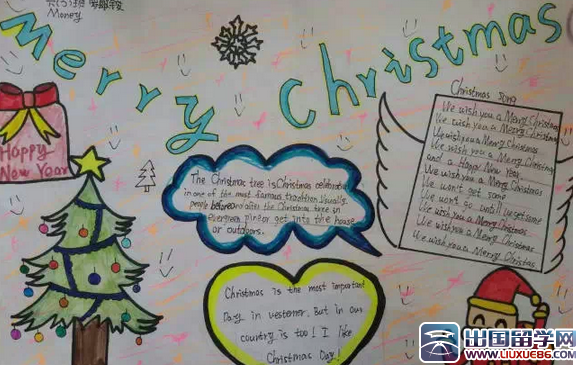 六(5)班
Money
Merry Christmas
Happy
New Year
Christmas song
We wish you a Merry Christmas
We wish you a Merry Christmas
We wish you a Merry Christmas
We wish you a Merry Christmas
and a Happy New Year
We wish you a Merry Christmas
We want some
We won't go until we get some
We wish you a Merry Christmas
We wish you a Merry Christmas
We wish you a Merry Christmas
The Christmas tree is Christmas celebrate
in one of the most famous tradition usually
people before and after the Christmas tree in
evergreen piney get into the house
or outdoors.
Christmas is the most important
Day in vestener. But in our
country is too! I like
Christmas Day!
出国留学网
www.liuxue86.com